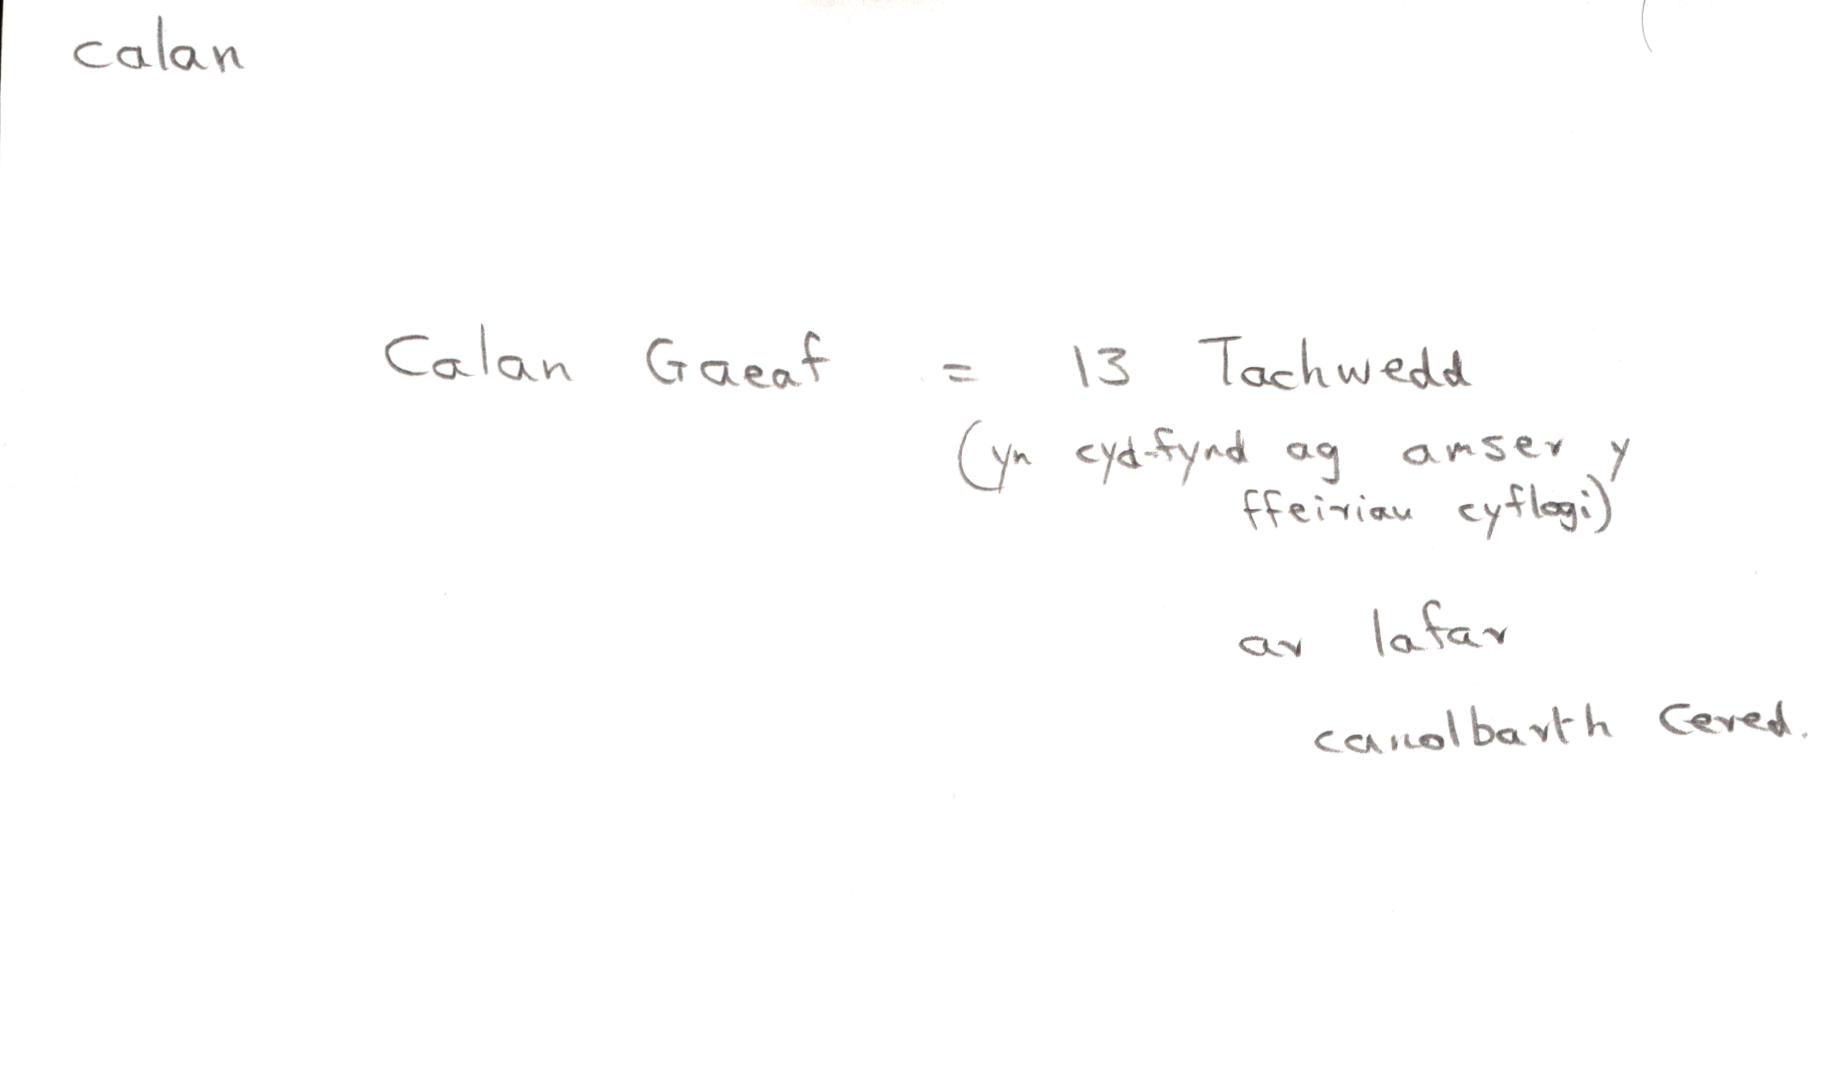 calan
Calan Gaeaf = 13 Tachwedd
(yn cyd-fynd ag amser y
ffeiriau cyflogi)
ar lafar
canolbarth Cered.